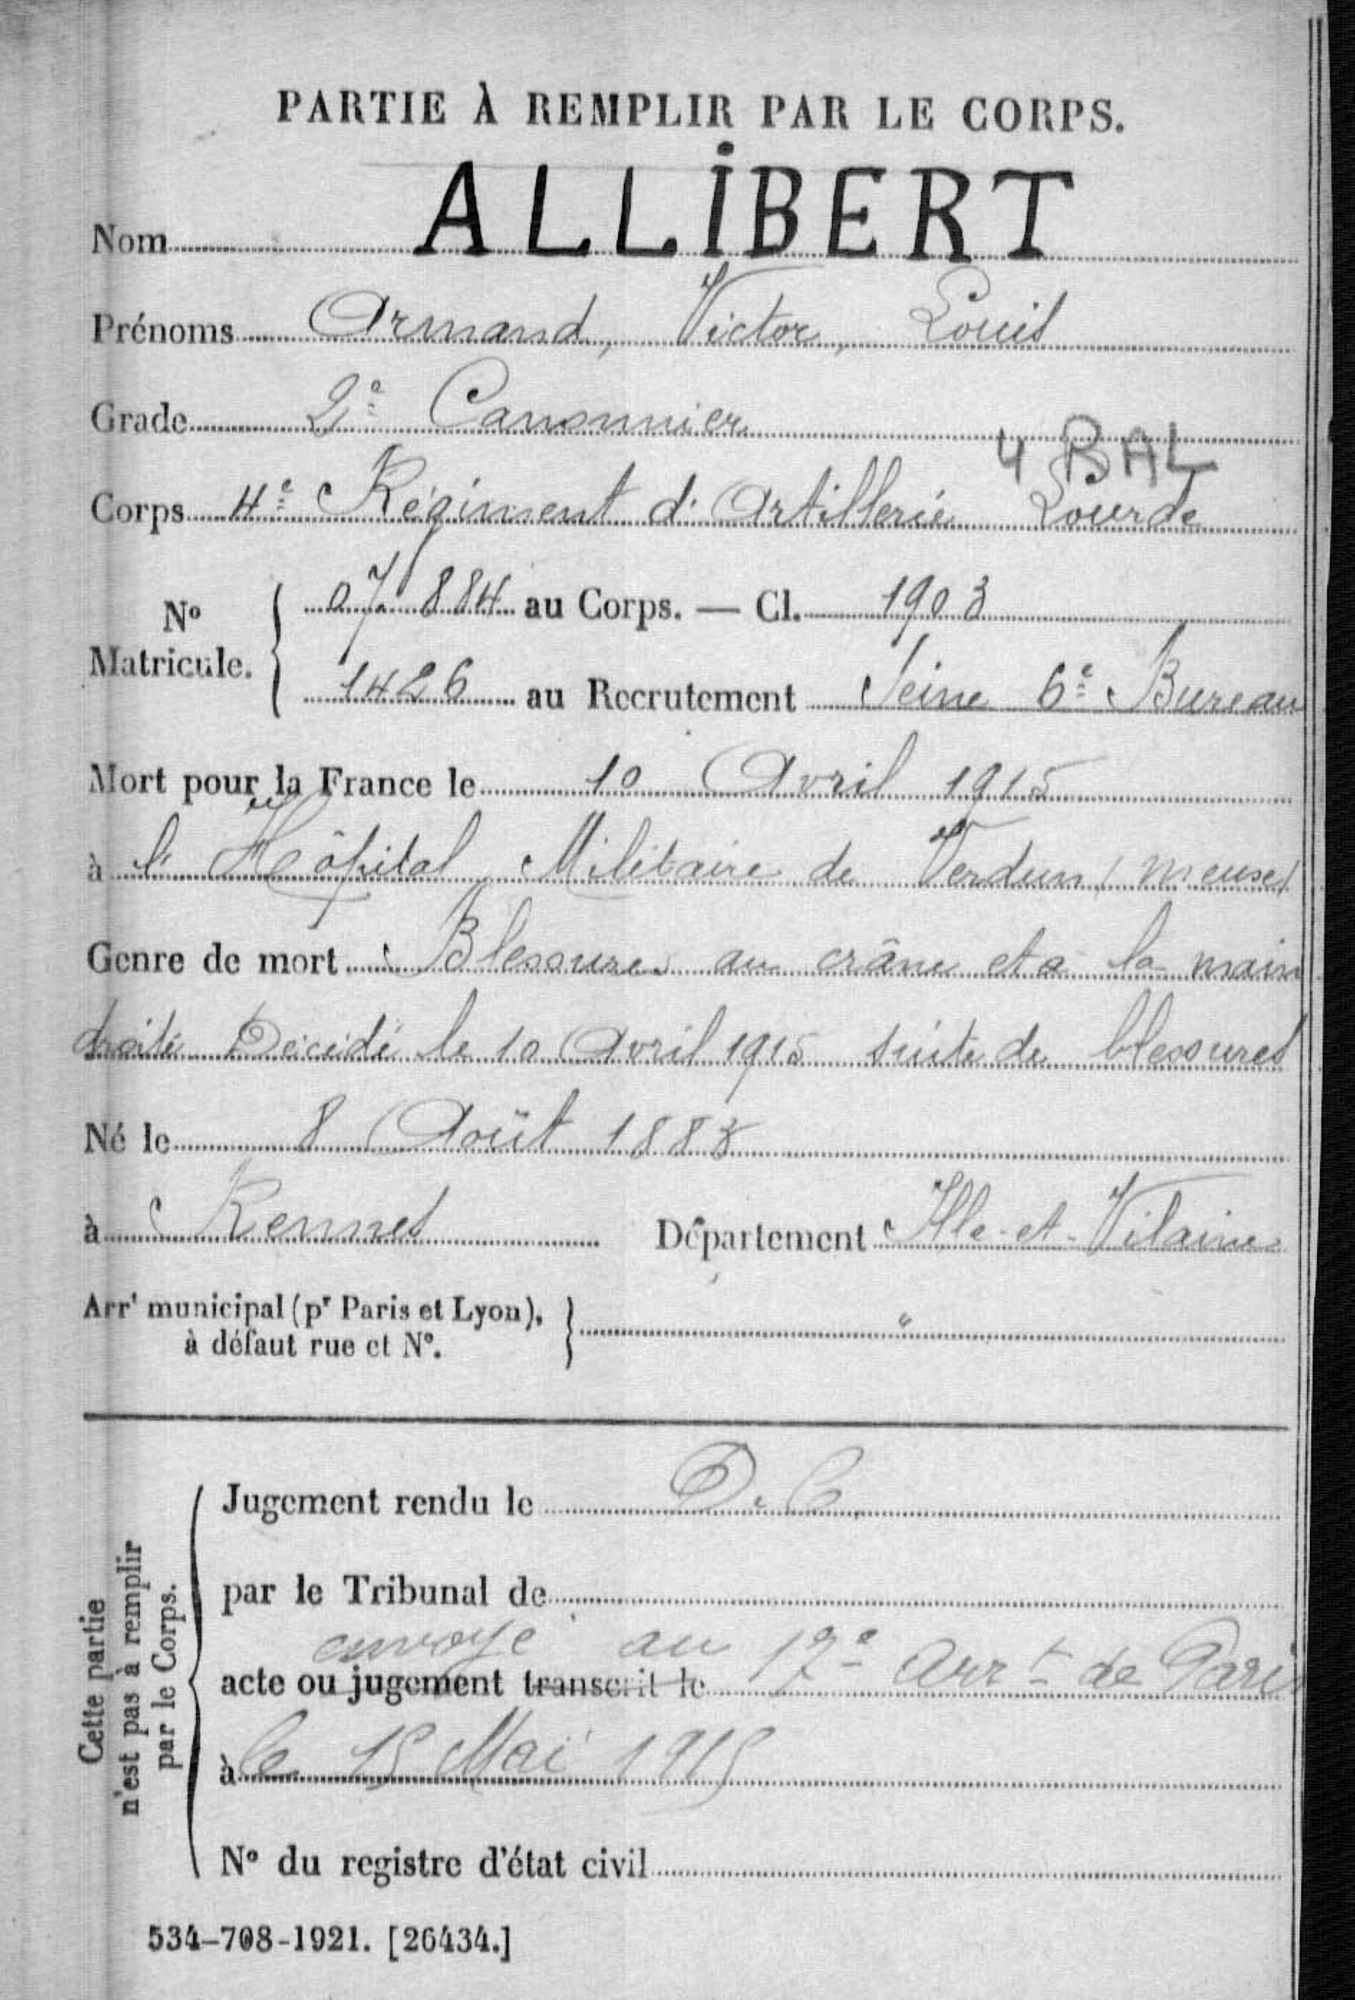 PARTIE À REMPLIR PAR LE CORPS.
Nom ALLIBERT
Prénoms Armand, Victor, Louis
Grade 2e Canonnier
4 BAL
Corps 4e Régiment d'Artillerie Lourde
No Matricule. { 07 884 au Corps. — Cl. 1903
1426 au Recrutement Seine 6e Bureau
Mort pour la France le 10 Avril 1915
à l'Hôpital Militaire de Verdun (Meuse)
Genre de mort Blessures au crâne et à la main
droite Décédé le 10 Avril 1915 suite de blessures
Né le 8 Août 1883
à Rennes Département Ille-et-Vilaine
Arrt municipal (pr Paris et Lyon), à défaut rue et No. } "
Cette partie n'est pas à remplir par le Corps.
Jugement rendu le D. C.
par le Tribunal de
envoyé au 12e Arrt de Paris
acte ou jugement transcrit le
à le 15 Mai 1915
No du registre d'état civil
534-708-1921. [26434.]